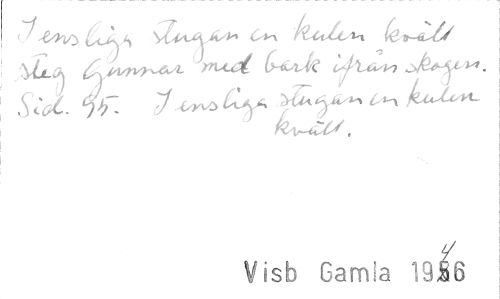 I ensliga stugan en kulen kväll
steg Gunnar med bark ifrån skogen.
Sid. 95. I ensliga stugan en kulen
kväll.
Visb Gamla 1946